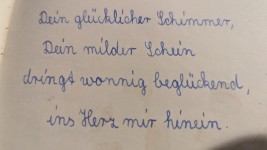 Dein glücklicher Schimmer,
Dein milder Schein
dringt wonnig beglückend,
ins Herz mir hinein.